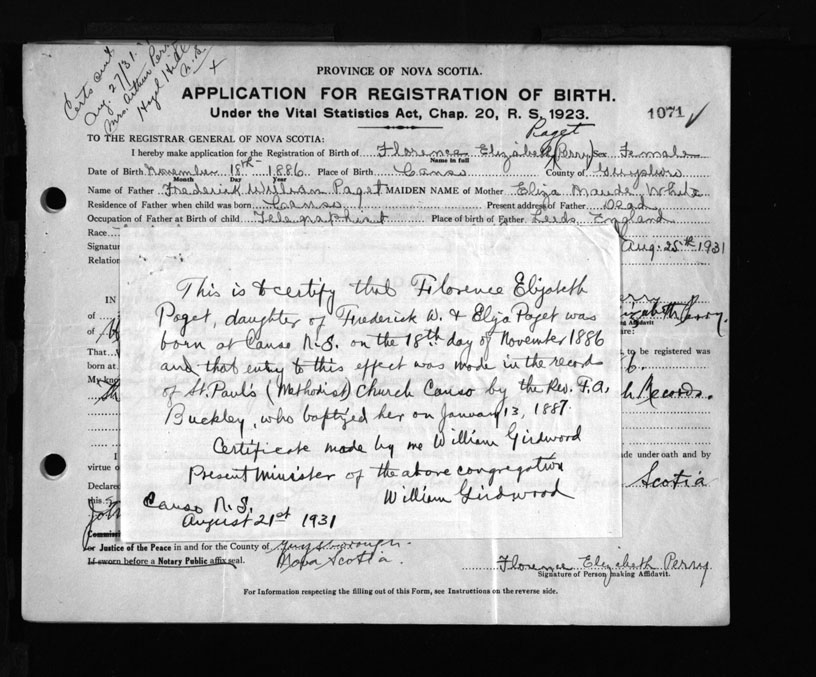 Certs sent
Aug. 27/31.
Mrs. Arthur Perry
Hazel Hill
N.S.
PROVINCE OF NOVA SCOTIA.
APPLICATION FOR REGISTRATION OF BIRTH.
Under the Vital Statistics Act, Chap. 20, R. S. 1923.
1071
TO THE REGISTRAR GENERAL OF NOVA SCOTIA:
Paget
I hereby make application for the Registration of Birth of Florence Elizabeth (Perry) Sex Female
Name in full
Date of Birth November 18th 1886 Place of Birth Canso County of Guysboro
Month Day Year
Name of Father Frederick William Paget MAIDEN NAME of Mother Eliza Maude White
Residence of Father when child was born Canso Present address of Father Dead
Occupation of Father at Birth of child Telegraphist Place of birth of Father Leeds England
Race
Signatur Aug. 25th 1931
Relation
This is to certify that Florence Elizabeth
Paget, daughter of Frederick W. & Eliza Paget was
born at Canso N.S. on the 18th day of November 1886
and that entry to this effect was made in the records
of St. Paul's (Methodist) Church Canso by the Rev. F. A.
Buckley, who baptized her on January 13, 1887.
Certificate made by me William Girdwood
Present Minister of the above congregation
William Girdwood
Canso N.S.
August 21st 1931
IN
of
izabeth Perry.
ng Affidavit
of are:
That to be registered was
born at 6.
My kno
h Records.
I made under oath and by
virtue o
Declared Scotia
this
or Justice of the Peace in and for the County of Guysborough.
If sworn before a Notary Public affix seal. Nova Scotia.
Florence Elizabeth Perry
Signature of Person making Affidavit.
For Information respecting the filling out of this Form, see Instructions on the reverse side.